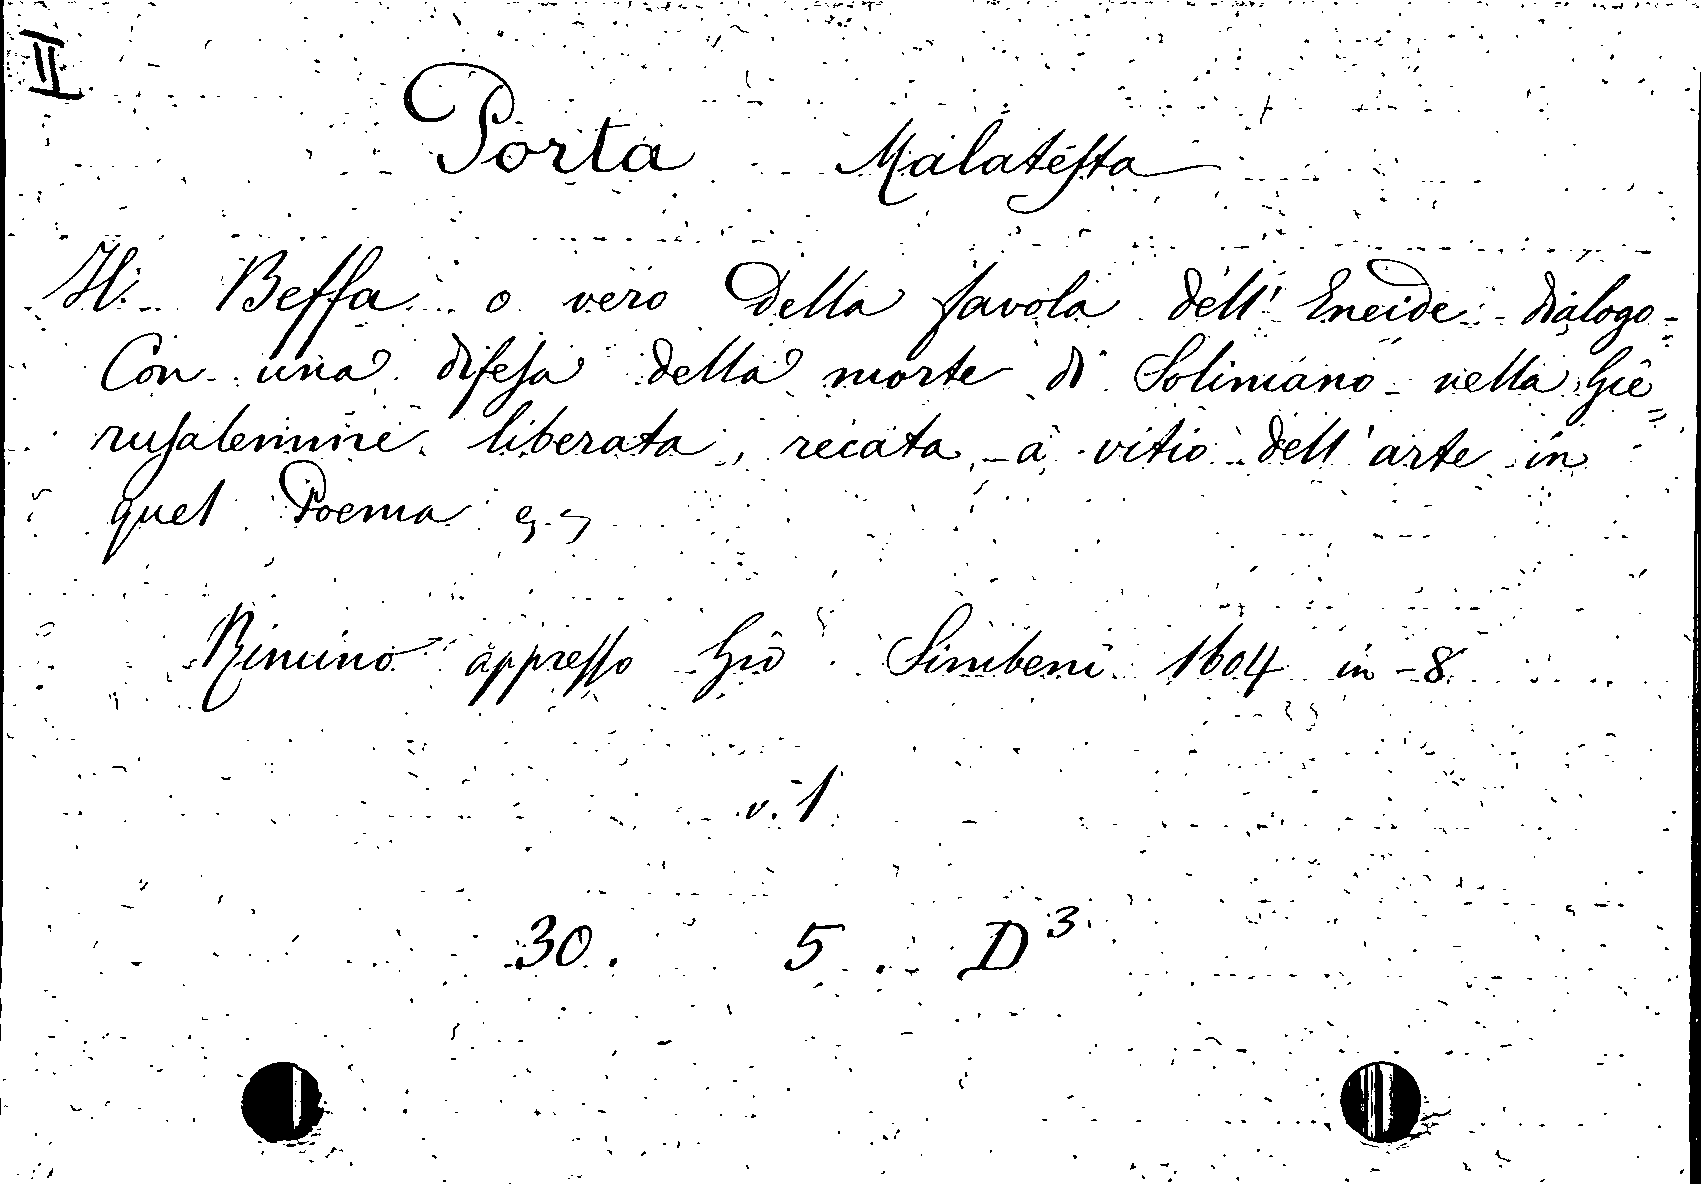 II
Porta Malatesta
Il Beffa o vero Della favola dell' Eneide dialogo
Con una difesa della morte di Solimano nella Gie=
rusalemme liberata, recata a vitio dell' arte in
quel Poema
Rimino appresso Gio Simbeni 1604 in-8
v. 1
30. 5. D3